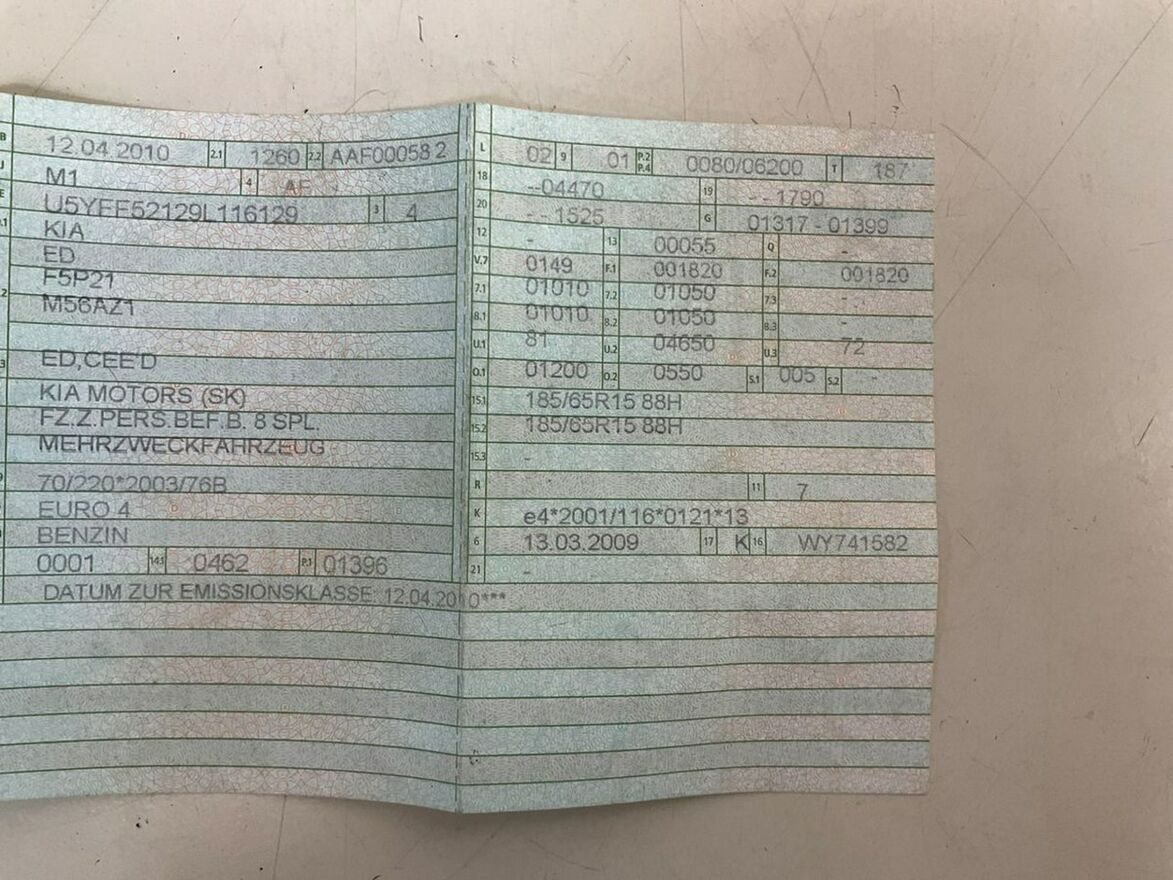 B 12.04.2010 2.1 1260 2.2 AAF00058 2
J M1 4 AF
E U5YFF52129L116129 3 4
KIA
ED
F5P21
M56AZ1
ED,CEE'D
KIA MOTORS (SK)
FZ.Z.PERS.BEF.B. 8 SPL.
MEHRZWECKFAHRZEUG
70/220*2003/76B
EURO 4
BENZIN
0001 14.1 0462 P.1 01396
DATUM ZUR EMISSIONSKLASSE: 12.04.2010***
L 02 9 01 P.2 P.4 0080/06200 T 187
18 --04470 19 --1790
20 --1525 G 01317 - 01399
12 - 13 00055 Q -
V.7 0149 F.1 001820 F.2 001820
7.1 01010 7.2 01050 7.3 -
8.1 01010 8.2 01050 8.3 -
U.1 81 U.2 04650 U.3 72
O.1 01200 O.2 0550 S.1 005 S.2 -
15.1 185/65R15 88H
15.2 185/65R15 88H
15.3 -
R 11 7
K e4*2001/116*0121*13
6 13.03.2009 17 K 16 WY741582
21 -